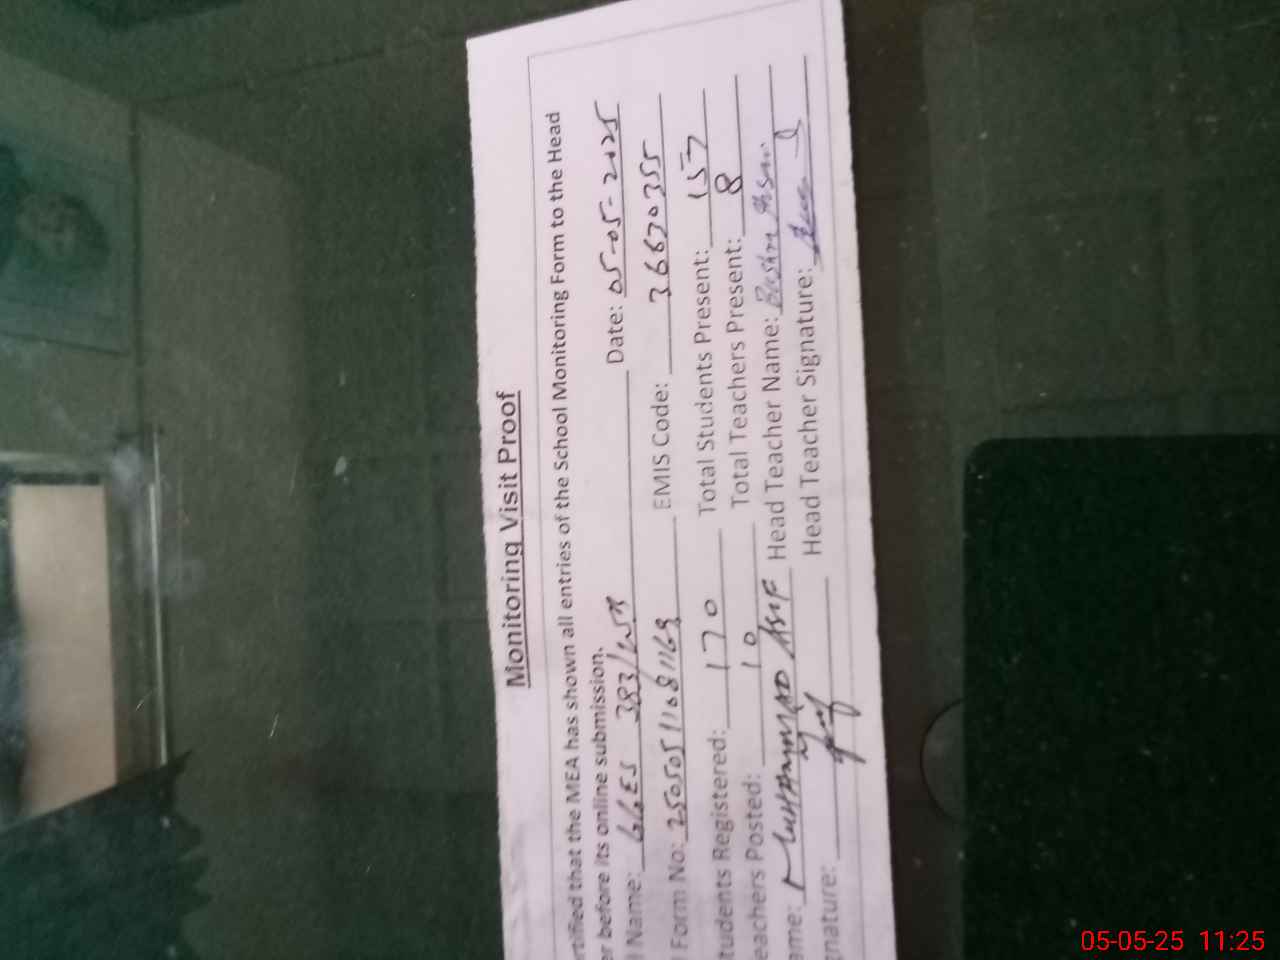 Monitoring Visit Proof
rtified that the MEA has shown all entries of the School Monitoring Form to the Head
er before its online submission.
l Name: GGES 383/WB Date: 05-05-2025
l Form No: 25050511081169 EMIS Code: 36670355
tudents Registered: 170 Total Students Present: 157
eachers Posted: 10 Total Teachers Present: 8
ame: MUHAMMAD ASIF Head Teacher Name:
gnature: Head Teacher Signature:
05-05-25 11:25